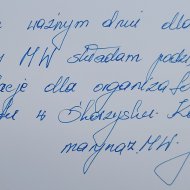 ważnym dniu dla
MW składam podzi
acje dla organizato
w Skarżysku. K
marynaz.MW.